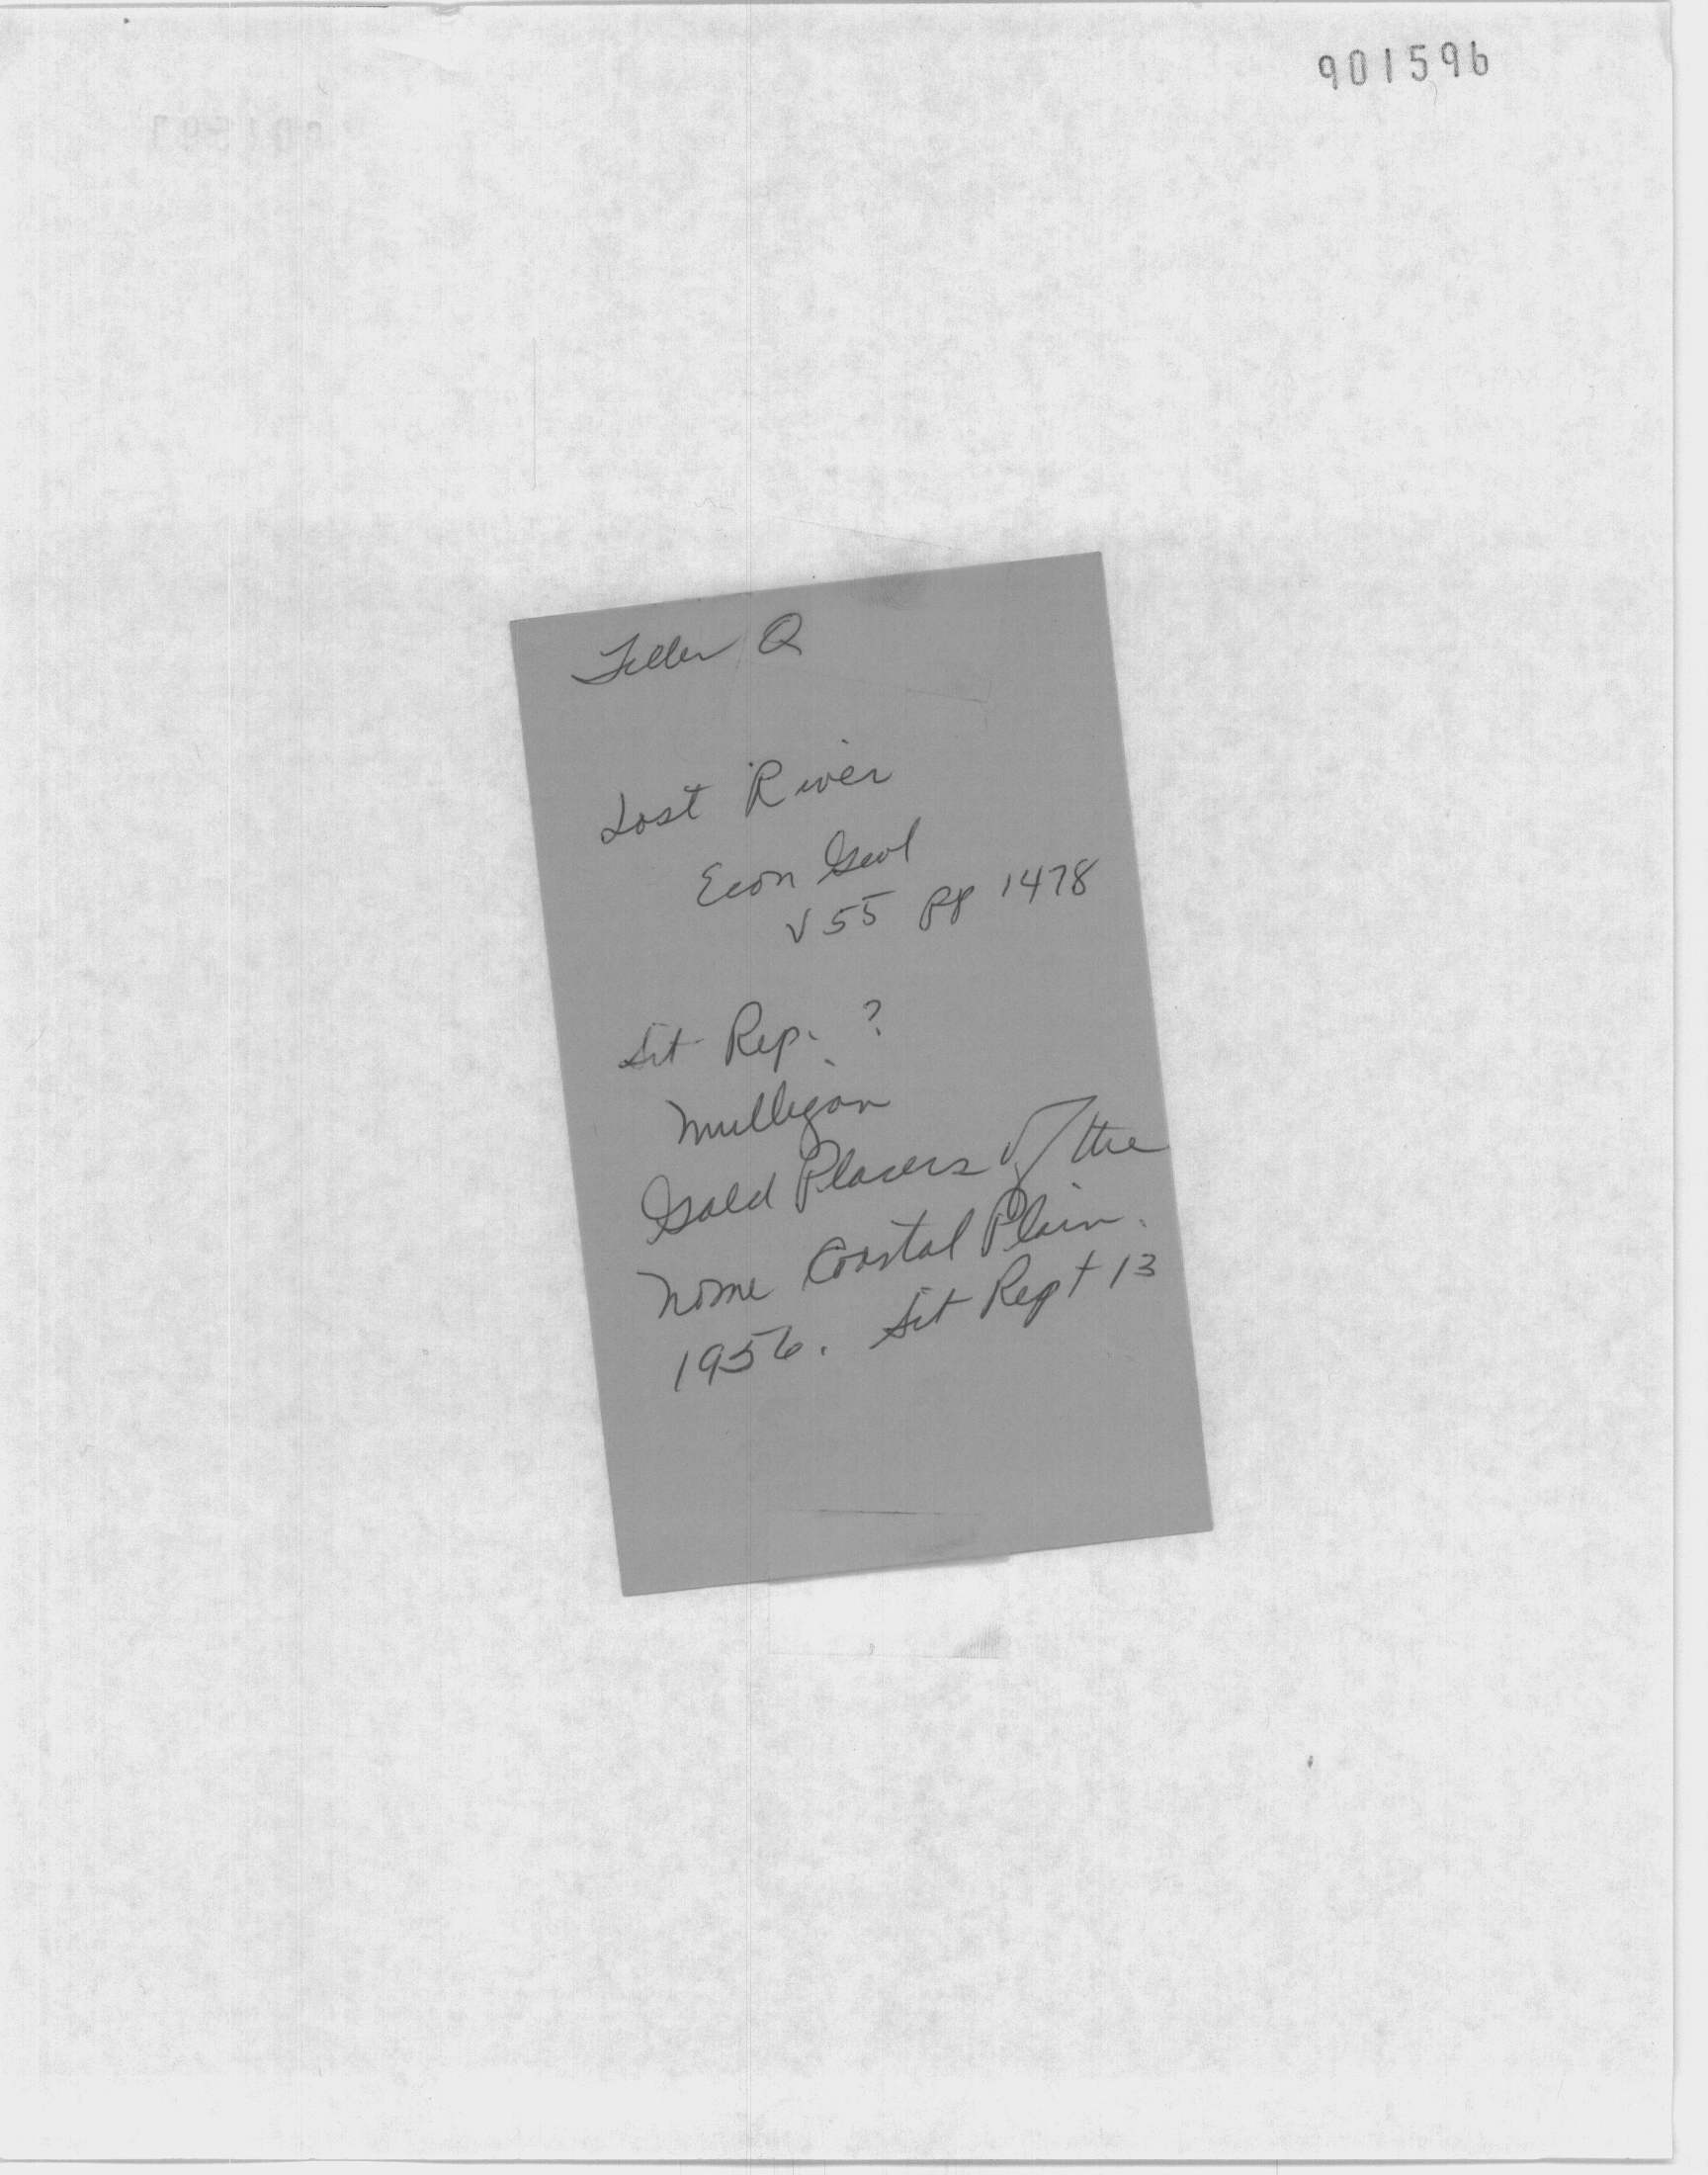 901596
Teller Q
Lost River
Econ Geol
V 55 pp 1478
Sit Rep. ?
Mulligan
Gold Placers of the
Nome Coastal Plain.
1956. Sit Rept 13